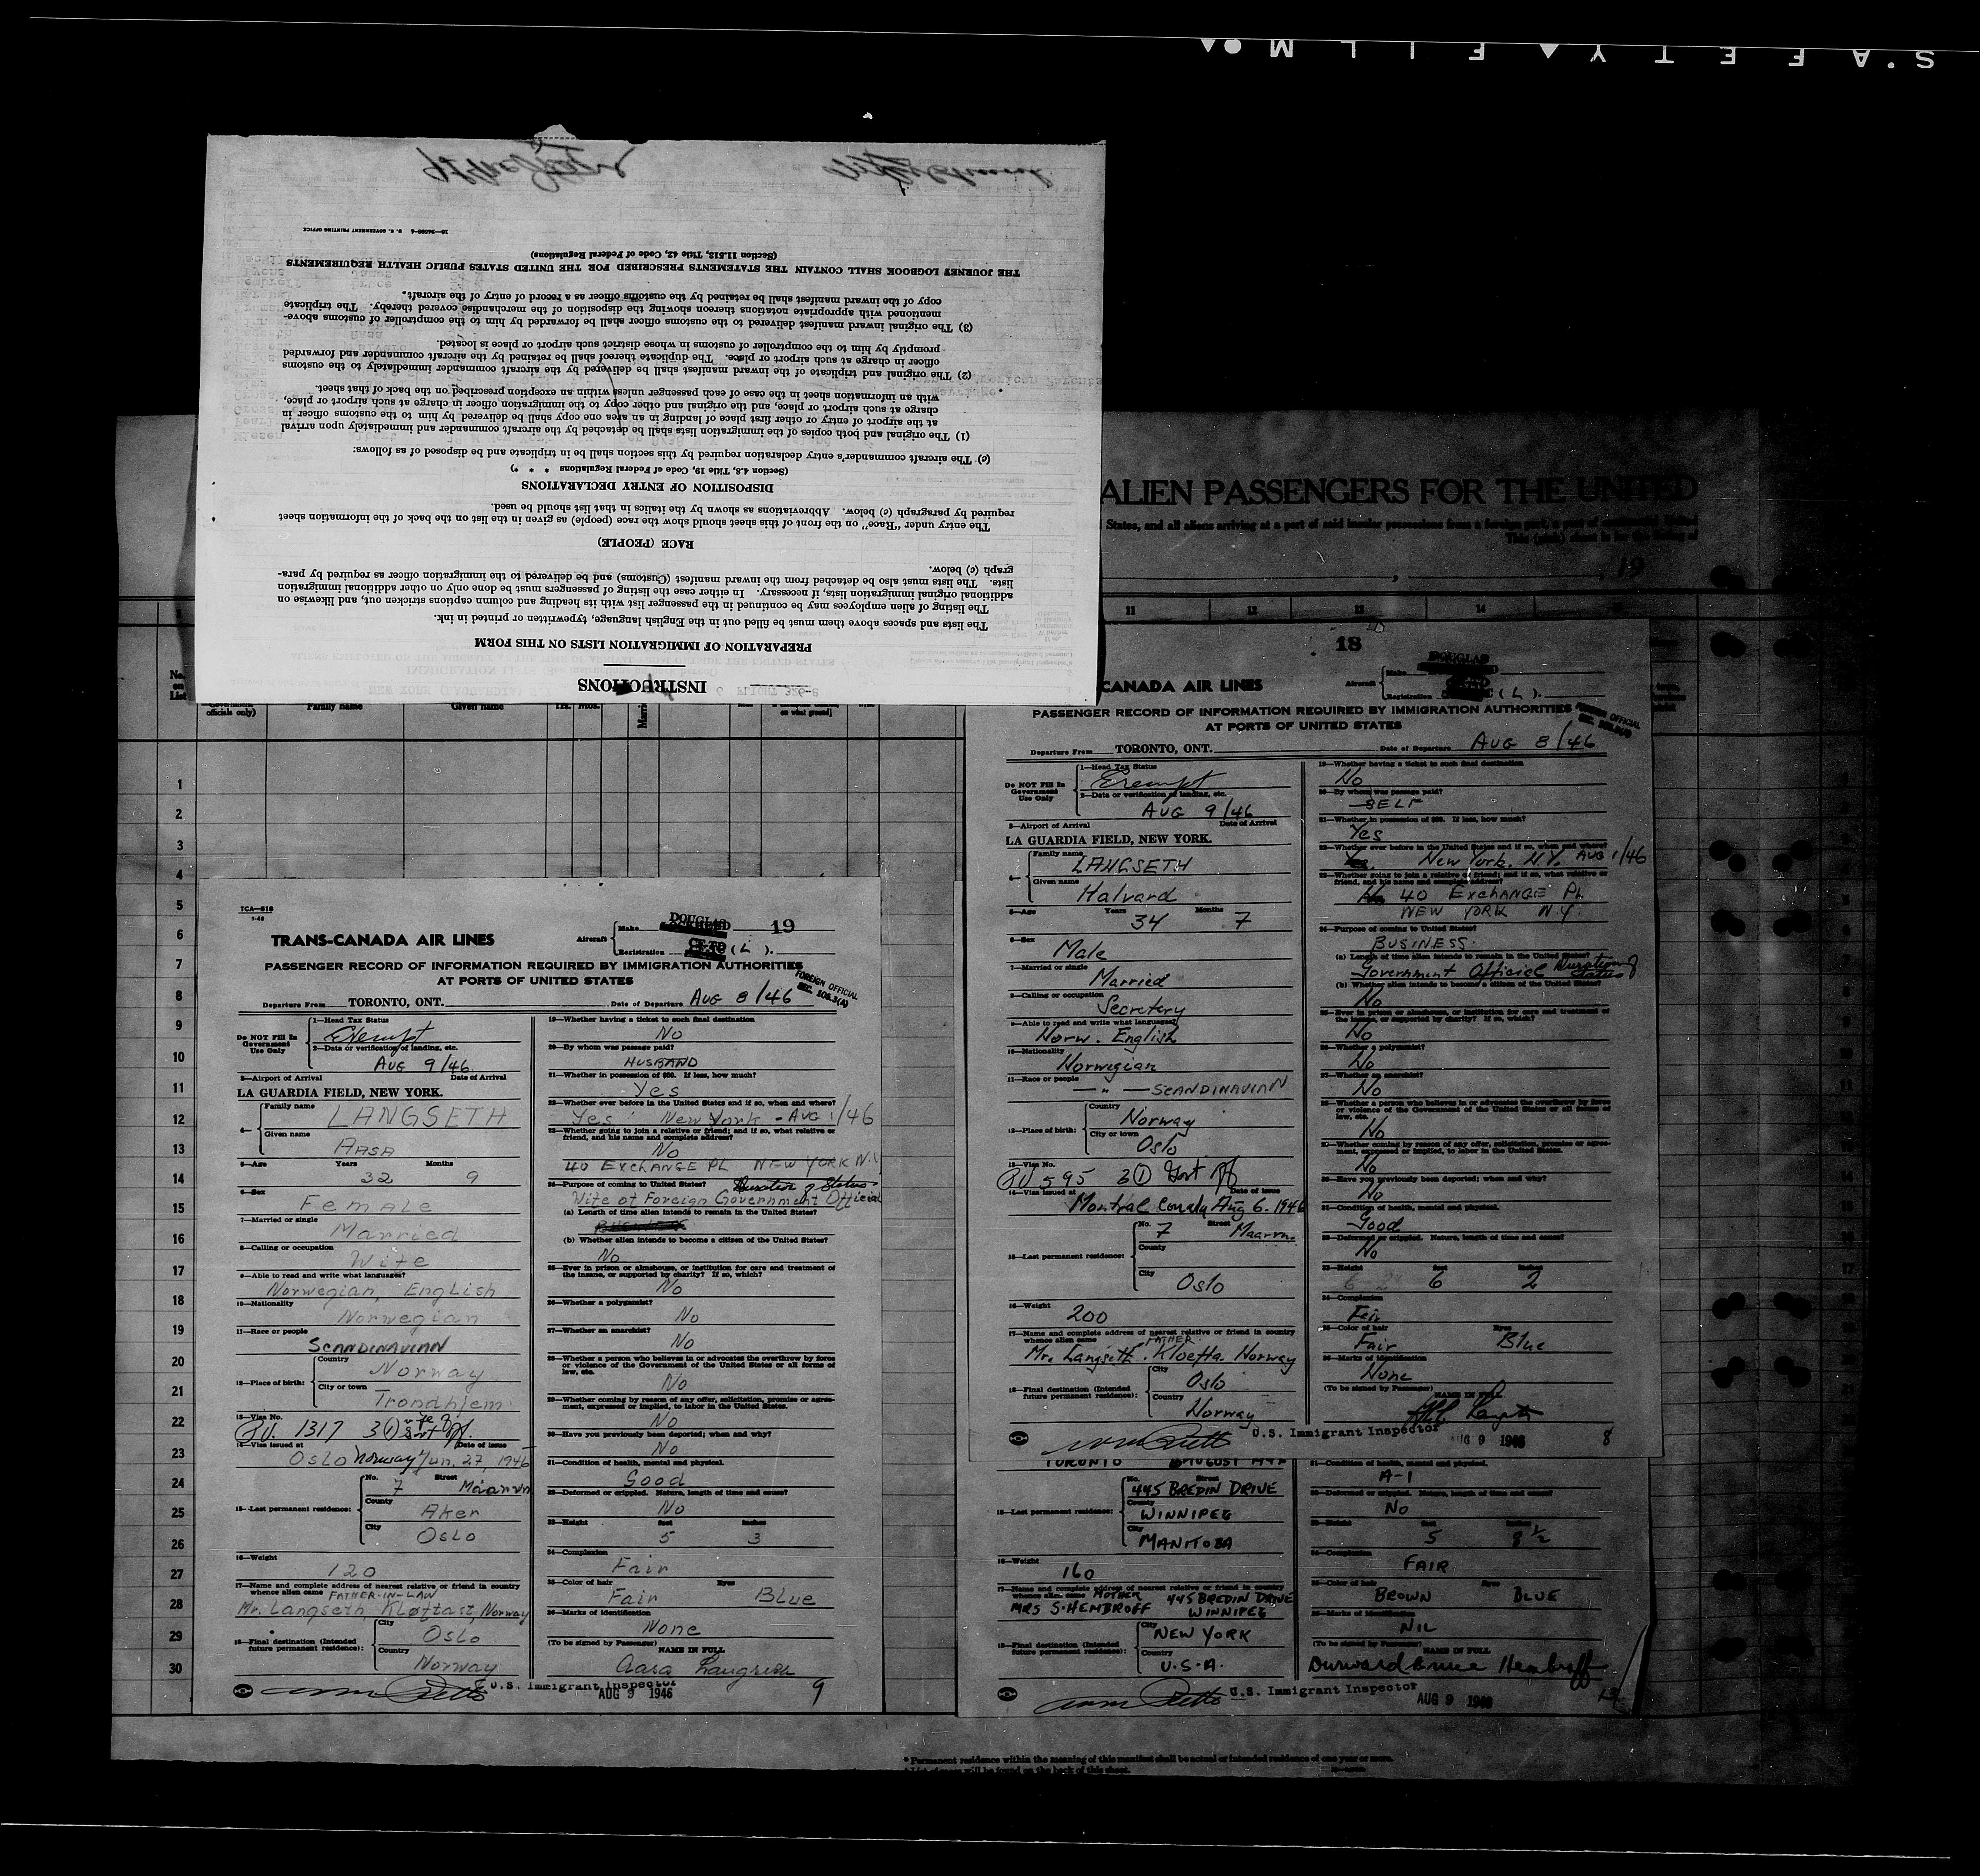 SAFETY FILM
INSTRUCTIONS
PREPARATION OF IMMIGRATION LISTS ON THIS FORM
The lists and spaces above them must be filled out in the English language, typewritten or printed in ink.
The listing of alien employees may be continued in the passenger list with its heading and column captions stricken out, and likewise on
additional original immigration lists, if necessary. In either case the listing of passengers must be done only on other additional immigration
lists. The lists must also be detached from the inward manifest (Customs) and be delivered to the immigration officer as required by para-
graph (c) below.
RACE (PEOPLE)
The entry under "Race" on the front of this sheet should show the race (people) as given in the list on the back of the information sheet
required by paragraph (c) below. Abbreviations as shown by the italics in that list should be used.
DISPOSITION OF ENTRY DECLARATIONS
(Section 4.8, Title 19, Code of Federal Regulations * * *)
(c) The aircraft commander's entry declaration required by this section shall be in triplicate and be disposed of as follows:
(1) The original and both copies of the immigration lists shall be detached by the aircraft commander and immediately upon arrival
at the airport of entry or other first place of landing in an area one copy shall be delivered by him to the customs officer in
charge at such airport or place, and the original and other copy to the immigration officer in charge at such airport or place,
with an information sheet in the case of each passenger unless within an exception prescribed on the back of that sheet.
(2) The original and triplicate of the inward manifest shall be delivered by the aircraft commander immediately to the customs
officer in charge at such airport or place. The duplicate thereof shall be retained by the aircraft commander and forwarded
promptly by him to the comptroller of customs in whose district such airport or place is located.
(3) The original inward manifest delivered to the customs officer shall be forwarded by him to the comptroller of customs above-
mentioned with appropriate notations thereon showing the disposition of the merchandise covered thereby. The triplicate
copy of the inward manifest shall be retained by the customs officer as a record of entry of the aircraft.
THE JOURNEY LOGBOOK SHALL CONTAIN THE STATEMENTS PRESCRIBED FOR THE UNITED STATES PUBLIC HEALTH REQUIREMENTS
(Section 11.513, Title 42, Code of Federal Regulations)
U. S. GOVERNMENT PRINTING OFFICE
ALIEN PASSENGERS FOR THE UNITED
States, and all aliens arriving at a port of said insular possessions from a foreign port, a port of
This (pink) sheet is for the listing of
, 19
11 12 13 14
No. on List
officials only) Family name Given name Yrs. Mos.
1
2
3
4
5
6
7
8
9
10
11
12
13
14
15
16
17
18
19
20
21
22
23
24
25
26
27
28
29
30
TCA—818
TRANS-CANADA AIR LINES
Aircraft Make DOUGLAS 19
Registration (L).
PASSENGER RECORD OF INFORMATION REQUIRED BY IMMIGRATION AUTHORITIES
AT PORTS OF UNITED STATES
FOREIGN OFFICIAL
Departure From TORONTO, ONT. Date of Departure AUG 8/46
Do NOT Fill In Government Use Only
1—Head Tax Status
Exempt
2—Data or verification of landing, etc.
AUG 9/46
3—Airport of Arrival Date of Arrival
LA GUARDIA FIELD, NEW YORK.
4— Family name LANGSETH
Given name AASA
5—Age Years 32 Months 9
6—Sex
Female
7—Married or single
Married
8—Calling or occupation
Wife
9—Able to read and write what languages?
Norwegian, English
10—Nationality
Norwegian
11—Race or people
SCANDINAVIAN
12—Place of birth: Country Norway
City or town Trondhjem
13—Visa No.
1317
14—Visa issued at Date of issue
Oslo Norway Jun. 27, 1946
15—Last permanent residence: No. 7 Street
County Aker
City Oslo
16—Weight
120
17—Name and complete address of nearest relative or friend in country
whence alien came FATHER-IN-LAW
Mr. Langseth, Norway
18—Final destination (Intended future permanent residence): City Oslo
Country Norway
19—Whether having a ticket to such final destination
No
20—By whom was passage paid?
HUSBAND
21—Whether in possession of $50. If less, how much?
Yes
22—Whether ever before in the United States and if so, when and where?
Yes New York - AUG 1/46
23—Whether going to join a relative or friend; and if so, what relative or
friend, and his name and complete address?
No
40 EXCHANGE PL NEW YORK N.Y
24—Purpose of coming to United States? Duration of Status
Wife of Foreign Government Official
(a) Length of time alien intends to remain in the United States?
(b) Whether alien intends to become a citizen of the United States?
No
25—Ever in prison or almshouse, or institution for care and treatment of
the insane, or supported by charity? If so, which?
No
26—Whether a polygamist?
No
27—Whether an anarchist?
No
28—Whether a person who believes in or advocates the overthrow by force
or violence of the Government of the United States or all forms of
law, etc.
No
29—Whether coming by reason of any offer, solicitation, promise or agree-
ment, expressed or implied, to labor in the United States.
No
30—Have you previously been deported; when and why?
No
31—Condition of health, mental and physical.
Good
32—Deformed or crippled. Nature, length of time and cause?
No
33—Height feet 5 inches 3
34—Complexion
Fair
35—Color of hair Eyes
Fair Blue
36—Marks of Identification
None
(To be signed by Passenger) NAME IN FULL
Aasa Langseth
U.S. Immigrant Inspector
AUG 9 1946
9
18
CANADA AIR LINES
Aircraft Make DOUGLAS
Registration (L).
PASSENGER RECORD OF INFORMATION REQUIRED BY IMMIGRATION AUTHORITIES
AT PORTS OF UNITED STATES
FOREIGN OFFICIAL
Departure From TORONTO, ONT. Date of Departure AUG 8/46
Do NOT Fill In Government Use Only
1—Head Tax Status
Exempt
2—Data or verification of landing, etc.
AUG 9/46
3—Airport of Arrival Date of Arrival
LA GUARDIA FIELD, NEW YORK.
4— Family name LANGSETH
Given name Halvard
5—Age Years 34 Months 7
6—Sex
Male
7—Married or single
Married
8—Calling or occupation
Secretery
9—Able to read and write what languages?
Norw. English
10—Nationality
Norwegian
11—Race or people
— " — SCANDINAVIAN
12—Place of birth: Country Norway
City or town Oslo
13—Visa No.
595
14—Visa issued at Date of issue
Montreal Canada Aug 6. 1946
15—Last permanent residence: No. 7 Street
County
City Oslo
16—Weight
200
17—Name and complete address of nearest relative or friend in country
whence alien came FATHER
Mr. Langseth. Kloefta. Norway
18—Final destination (Intended future permanent residence): City Oslo
Country Norway
19—Whether having a ticket to such final destination
No
20—By whom was passage paid?
SELF
21—Whether in possession of $50. If less, how much?
Yes
22—Whether ever before in the United States and if so, when and where?
Yes New York. N.Y. AUG 1/46
23—Whether going to join a relative or friend; and if so, what relative or
friend, and his name and complete address?
40 EXCHANGE PL
NEW YORK N.Y.
24—Purpose of coming to United States?
BUSINESS.
(a) Length of time alien intends to remain in the United States?
Government Official Duration of Status
(b) Whether alien intends to become a citizen of the United States?
No
25—Ever in prison or almshouse, or institution for care and treatment of
the insane, or supported by charity? If so, which?
No
26—Whether a polygamist?
No
27—Whether an anarchist?
No
28—Whether a person who believes in or advocates the overthrow by force
or violence of the Government of the United States or all forms of
law, etc.
No
29—Whether coming by reason of any offer, solicitation, promise or agree-
ment, expressed or implied, to labor in the United States.
No
30—Have you previously been deported; when and why?
No
31—Condition of health, mental and physical.
Good
32—Deformed or crippled. Nature, length of time and cause?
No
33—Height feet 6 inches 2
34—Complexion
Fair
35—Color of hair Eyes
Fair Blue
36—Marks of Identification
None
(To be signed by Passenger) NAME IN FULL
U.S. Immigrant Inspector
AUG 9 1946
8
TORONTO AUGUST
15—Last permanent residence: No. Street 445 BREDIN DRIVE
County WINNIPEG
City MANITOBA
16—Weight
160
17—Name and complete address of nearest relative or friend in country
whence alien came MOTHER 445 BREDIN DRIVE
MRS S. HEMBROFF WINNIPEG
18—Final destination (Intended future permanent residence): City NEW YORK
Country U.S.A.
31—Condition of health, mental and physical.
A-1
32—Deformed or crippled. Nature, length of time and cause?
No
33—Height feet 5 inches 8 ½
34—Complexion
FAIR
35—Color of hair Eyes
BROWN BLUE
36—Marks of Identification
NIL
(To be signed by Passenger) NAME IN FULL
Durward Bruce Hembroff
U.S. Immigrant Inspector
AUG 9 1946
* Permanent residence within the meaning of this manifest shall be actual or intended residence of one year or more.
will be found on the back of this sheet.